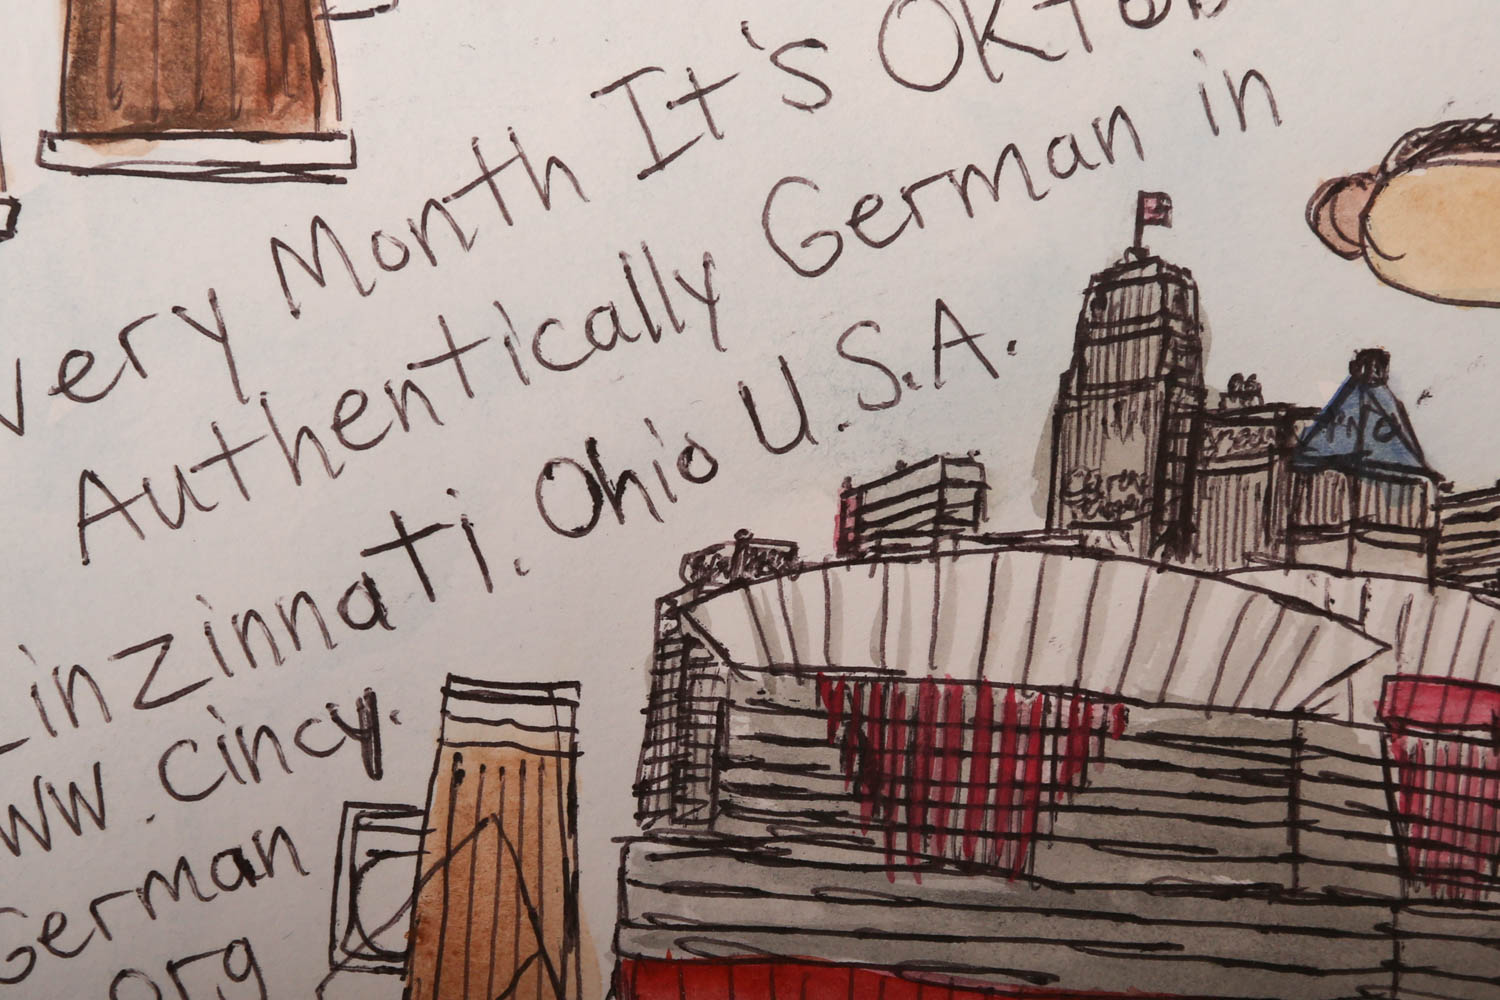 very Month It's Oktob
Authentically German in
inzinnati. Ohio U.S.A.
ww.cincy.
German
org